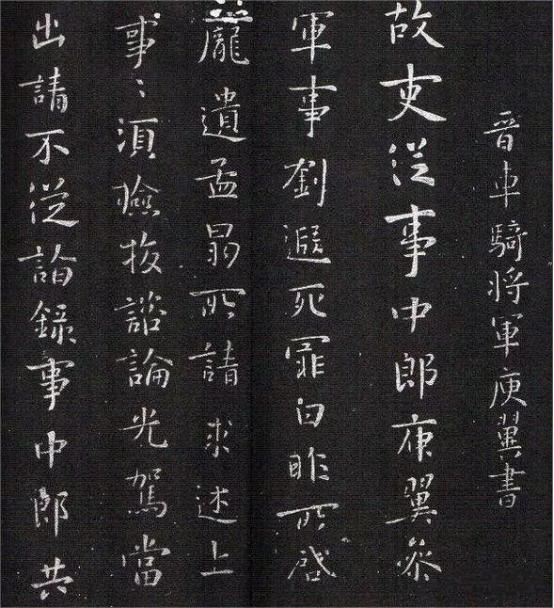 晉車騎將軍庾翼書
故吏從事中郎庾翼參
軍事劉遐死罪白昨所啓
龐遺孟昌所請求述上
事〻須檢校諮論光駕當
出請不從詣錄事中郎共